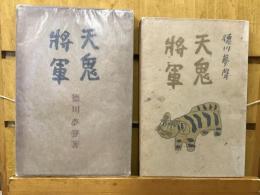 天鬼
將軍
徳川夢聲著
天鬼
將軍
徳川夢聲